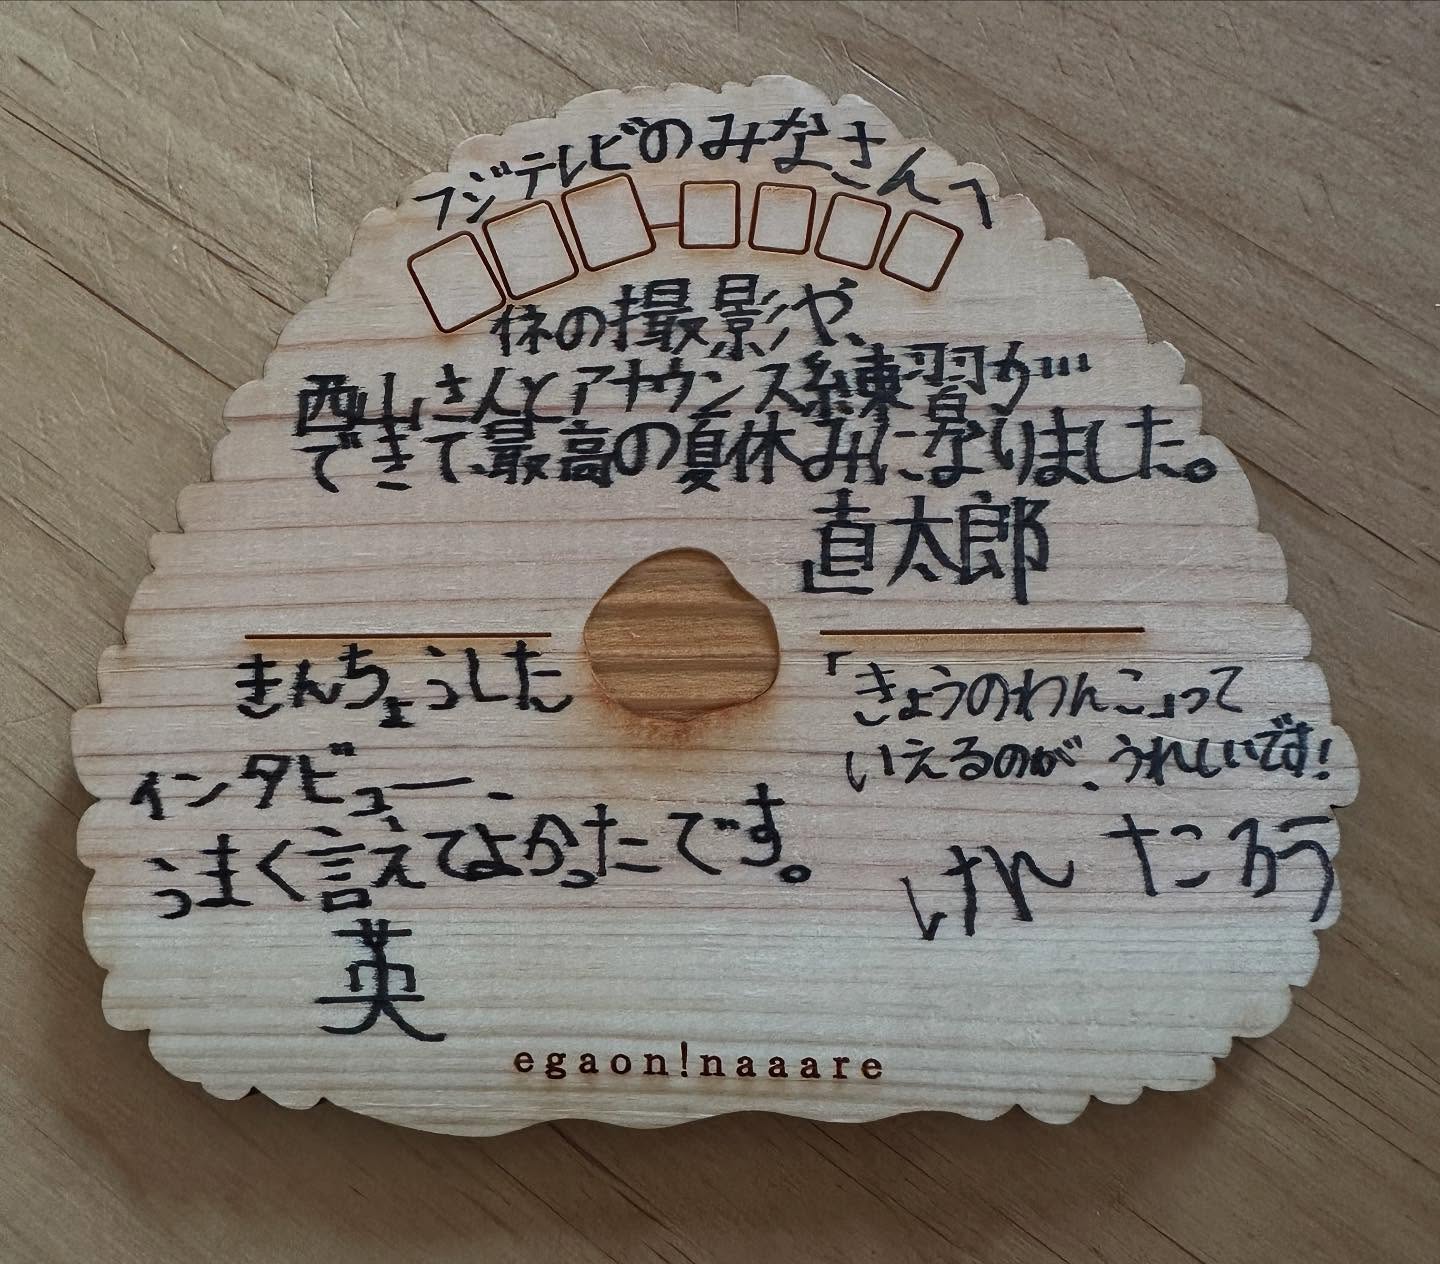 フジテレビのみなさんへ
株の撮影や、
西山さんとアナウンス練習が
できて、最高の夏休みになりました。
直太朗
きんちょうした
インタビュー、
うまく言えてよかったです。
英
「きょうのわんこ」って
いえるのが、うれしいです!
けんたろう
egaon!naaare